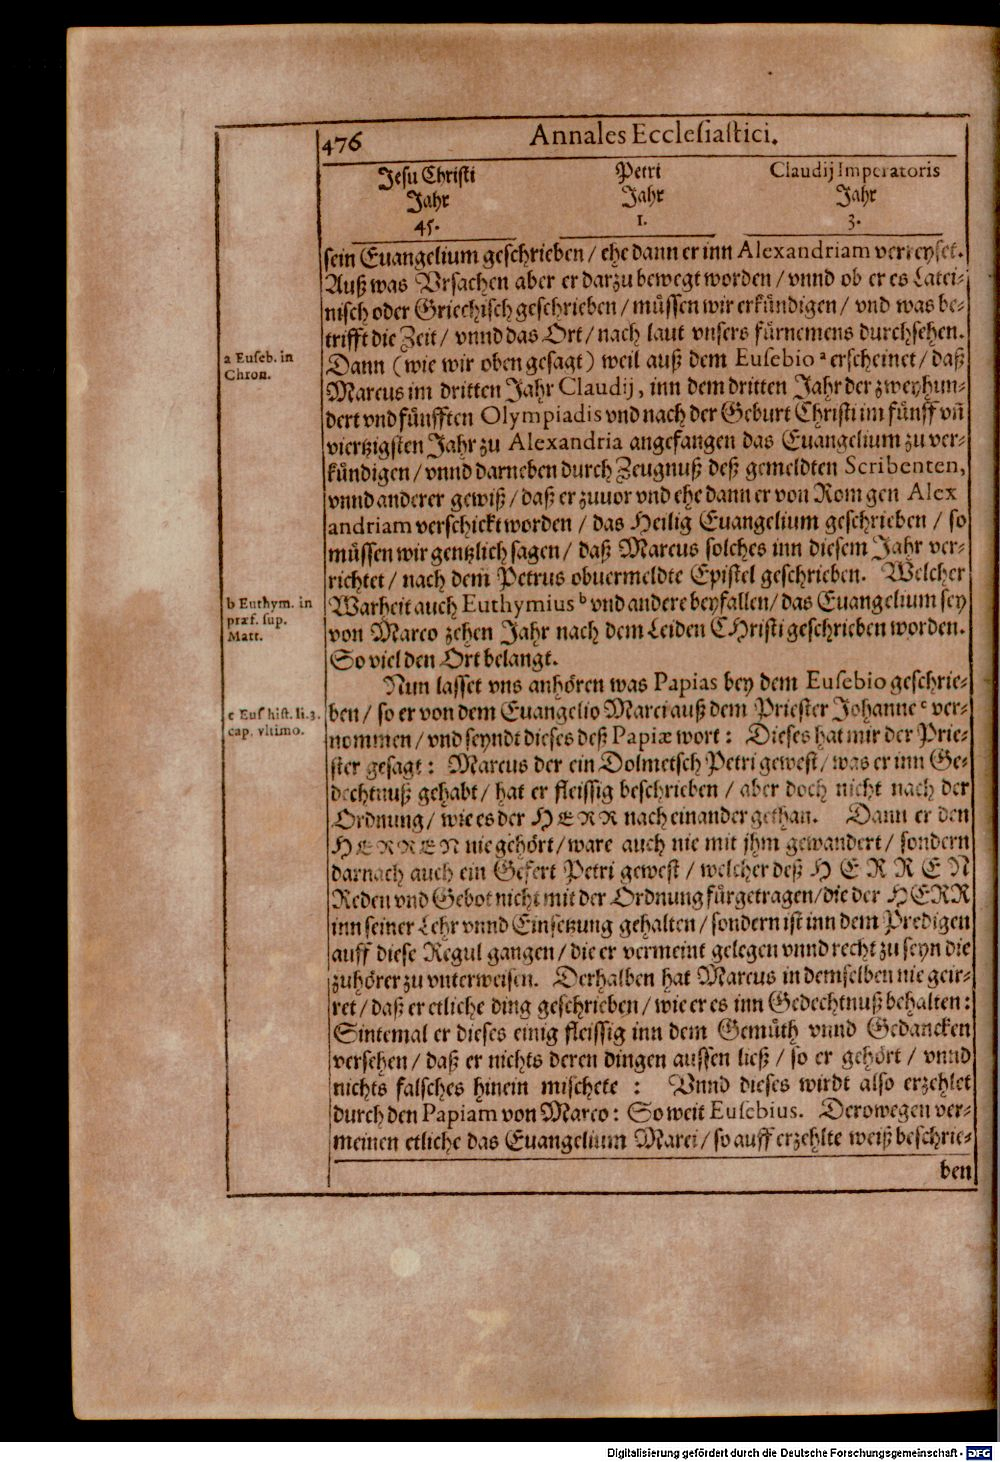 476 Annales Ecclesiastici.
Jesu Christi Petri Claudij Imperatoris
Jahr Jahr Jahr
45. 1. 3.
sein Euangelium geschrieben / ehe dann er inn Alexandriam verreyset.
Auß was Vrsachen aber er darzu bewegt worden / vnnd ob er es Latei-
nisch oder Griechisch geschrieben / müssen wir erkündigen / vnd was be-
trifft die Zeit / vnnd das Ort / nach laut vnsers fürnemens durchsehen.
a Euseb. in
Chron.
Dann (wie wir oben gesagt) weil auß dem Eusebio a erscheinet / daß
Marcus im dritten Jahr Claudij, inn dem dritten Jahr der zweyhun-
dert vnd fünfften Olympiadis vnd nach der Geburt Christi im fünff vñ
viertzigsten Jahr zu Alexandria angefangen das Euangelium zu ver-
kündigen / vnnd darneben durch Zeugnuß deß gemeldten Scribenten,
vnnd anderer gewiß / daß er zuuor vnd ehe dann er von Rom gen Alex
andriam verschickt worden / das Heilig Euangelium geschrieben / so
müssen wir gentzlich sagen / daß Marcus solches inn diesem Jahr ver-
richtet / nach dem Petrus obuermeldte Epistel geschrieben. Welcher
b Euthym. in
præf. sup.
Matt.
Warheit auch Euthymius b vnd andere beyfallen / das Euangelium sey
von Marco zehen Jahr nach dem Leiden CHristi geschrieben worden.
So viel den Ort belangt.
Nun lasset vns anhören was Papias bey dem Eusebio geschrie-
c Eus hist. li. 3.
cap. vltimo.
ben / so er von dem Euangelio Marci auß dem Priester Johanne c ver-
nommen / vnd seyndt dieses deß Papiæ wort : Dieses hat mir der Prie-
ster gesagt : Marcus der ein Dolmetsch Petri gewest / was er inn Ge-
dechtnuß gehabt / hat er fleissig beschrieben / aber doch nicht nach der
Ordnung / wie es der HERR nach einander gethan. Dann er den
HERREN nie gehört / ware auch nie mit jhm gewandert / sondern
darnach auch ein Gefert Petri gewest / welcher deß HERREN
Reden vnd Gebot nicht mit der Ordnung fürgetragen / die der HERR
inn seiner Lehr vnnd Einsetzung gehalten / sondern ist inn dem Predigen
auff diese Regul gangen / die er vermeint gelegen vnnd recht zu seyn die
zuhörer zu vnterweisen. Derhalben hat Marcus in demselben nie geir-
ret / daß er etliche ding geschrieben / wie er es inn Gedechtnuß behalten :
Sintemal er dieses einig fleissig inn dem Gemüth vnnd Gedancken
versehen / daß er nichts deren dingen aussen ließ / so er gehört / vnnd
nichts falsches hinein mischete : Vnnd dieses wirdt also erzehlet
durch den Papiam von Marco : So weit Eusebius. Derowegen ver-
meinen etliche das Euangelium Marci / so auff erzehlte weiß beschrie-
ben
Digitalisierung gefördert durch die Deutsche Forschungsgemeinschaft - DFG